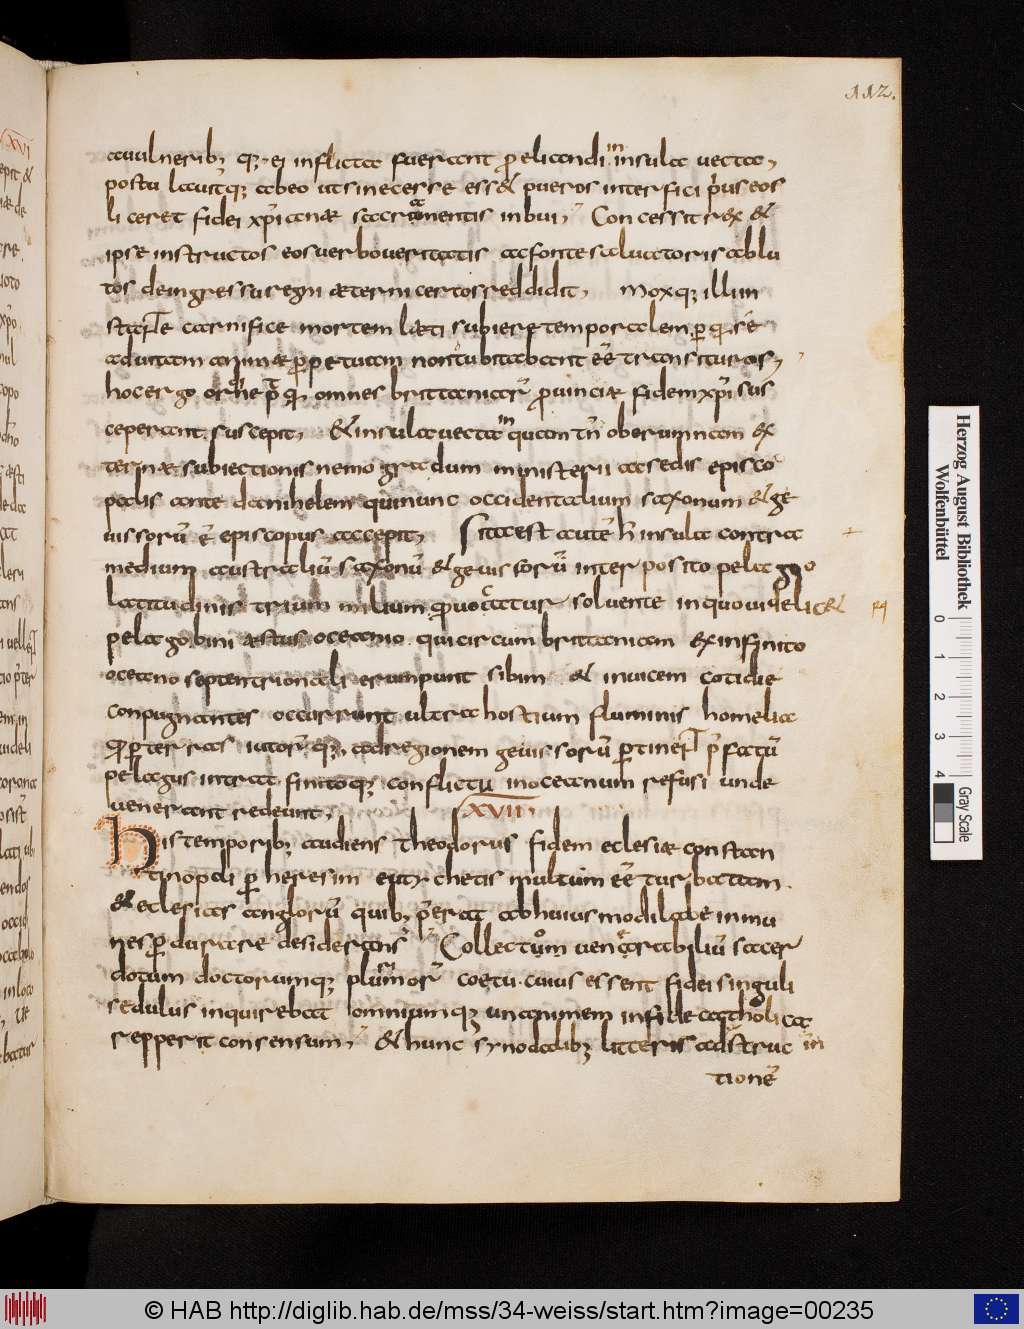 112.
auulnerib; q; ei inflicta fuerant p elicandi in insula uecta,
postulauitq; abeo ut sinecesse ess& pueros interfici prius eos
liceret fidei xpianae sacramentis inbui, Concessit rex &
ipse instructos eos uerbo ueritatis acfonte saluatoris ablu
tos deingressu regni aeterni certos reddidit, Moxq; illi in
stante carnifice mortem laeti subiere temporalem p qua se
aduitam animae ppetuam non dubitabant eē transituros,
hoc ergo ordine p q omnes brittaniarū prouinciae fidem xpi sus
ceperant suscepit, & insula uecta in quam tn̄ ob erumnam ex
ternae subiectionis nemo gradum ministerii ac sedis episco
palis ante danihelem qui nunc occidentalium saxonum & ge
uissorū ē episcopus accepit, Sita est autē h̄ insula contra
medium australiū saxonū & geuissorū interposito pelago
latitudinis trium milium quod uocatur soluente in quo uidelic&
pelago bini aestus oceanio qui circum brittaniam ex infinito
oceano septentrionali erumpunt sibim & inuicem cotidie
conpugnantes occurrunt ultra hostium fluminis homelea
q p terras iutorū q; ad regionem geuissorū ptinent p fatū
pelagus intrat finitoq; conflictu in oceanum refusi unde
uenerant redeunt, XVII,
His temporib; audiens theodorus fidem eclesiae constan
tinopoli p heresim eutychetis multum eē turbatam.
& eclesias anglorū quib; p̄erat ab huius modi labe inmu
nes p durare desiderans Collectum uenerabiliū sacer
dotum doctorumq; plurimorū coetu cuius essent fidei singuli
sedulus inquirebat omniumq; unanimem in fide catholica
repperit consensum, & hunc synodalib; litteris ad instruc
tionē
XVI
© HAB http://diglib.hab.de/mss/34-weiss/start.htm?image=00235
Herzog August Bibliothek
Wolfenbüttel
0 1 2 3 4
Gray Scale